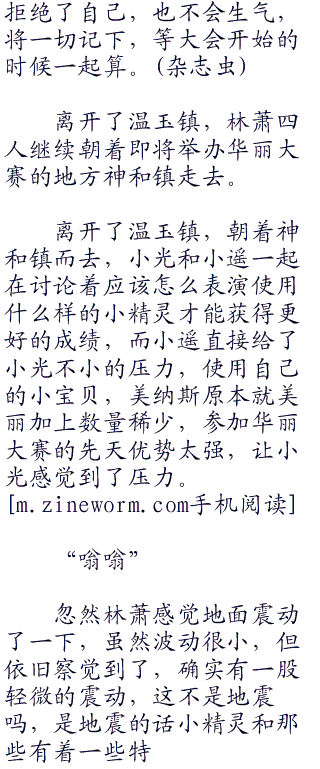 拒绝了自己，也不会生气，
将一切记下，等大会开始的
时候一起算。(杂志虫)
离开了温玉镇，林萧四
人继续朝着即将举办华丽大
赛的地方神和镇走去。
离开了温玉镇，朝着神
和镇而去，小光和小遥一起
在讨论着应该怎么表演使用
什么样的小精灵才能获得更
好的成绩，而小遥直接给了
小光不小的压力，使用自己
的小宝贝，美纳斯原本就美
丽加上数量稀少，参加华丽
大赛的先天优势太强，让小
光感觉到了压力。
[m.zineworm.com手机阅读]
“嗡嗡”
忽然林萧感觉地面震动
了一下，虽然波动很小，但
依旧察觉到了，确实有一股
轻微的震动，这不是地震
吗，是地震的话小精灵和那
些有着一些特